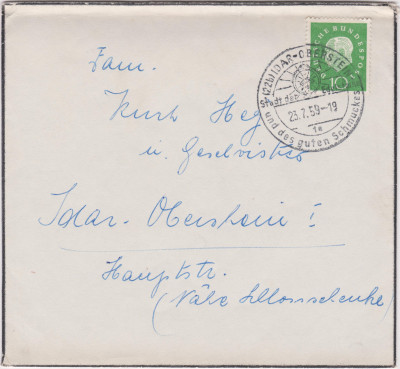 Fam.
Kurt Heg
u. Geschwister
Idar-Oberstein I
Hauptstr.
(Nähe Schlossschenke)
DEUTSCHE BUNDESPOST
10
(22b) IDAR-OBERSTEIN
Stadt der
23.7.59-19
1e
und des guten Schmuckes